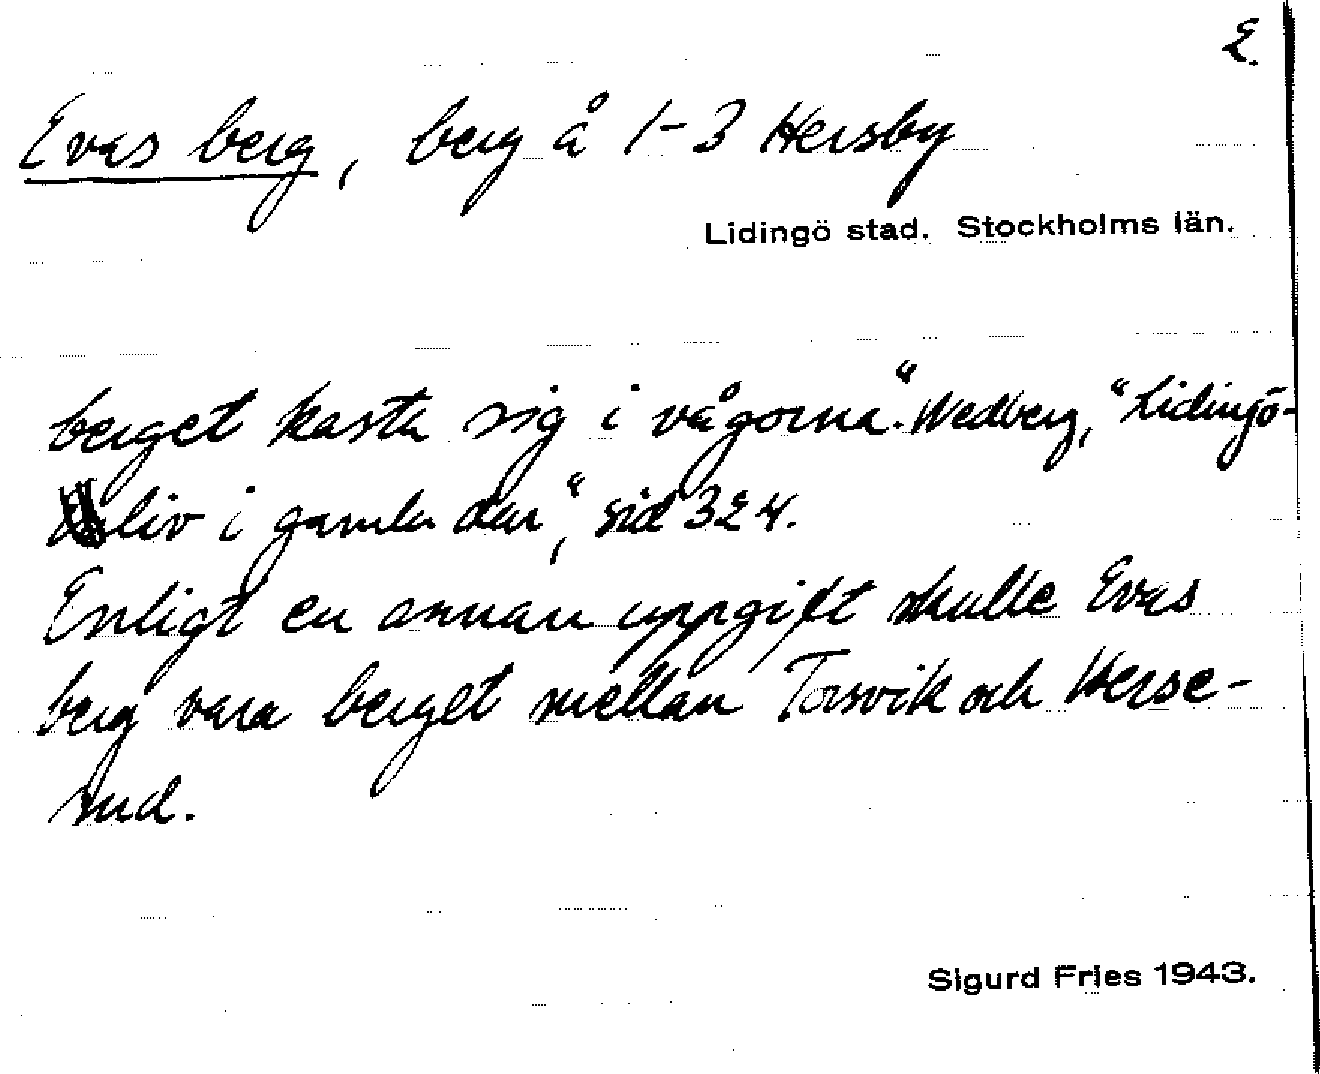 2.
Evas berg, berg å 1-3 Hersby
Lidingö stad. Stockholms län.
berget kasta sig i vågorna." Wedberg, "Lidingö-
liv i gamla dar", sid 324.
Enligt en annan uppgift skulle Evas
berg vara berget mellan Torsvik och Herse-
rud.
Sigurd Fries 1943.